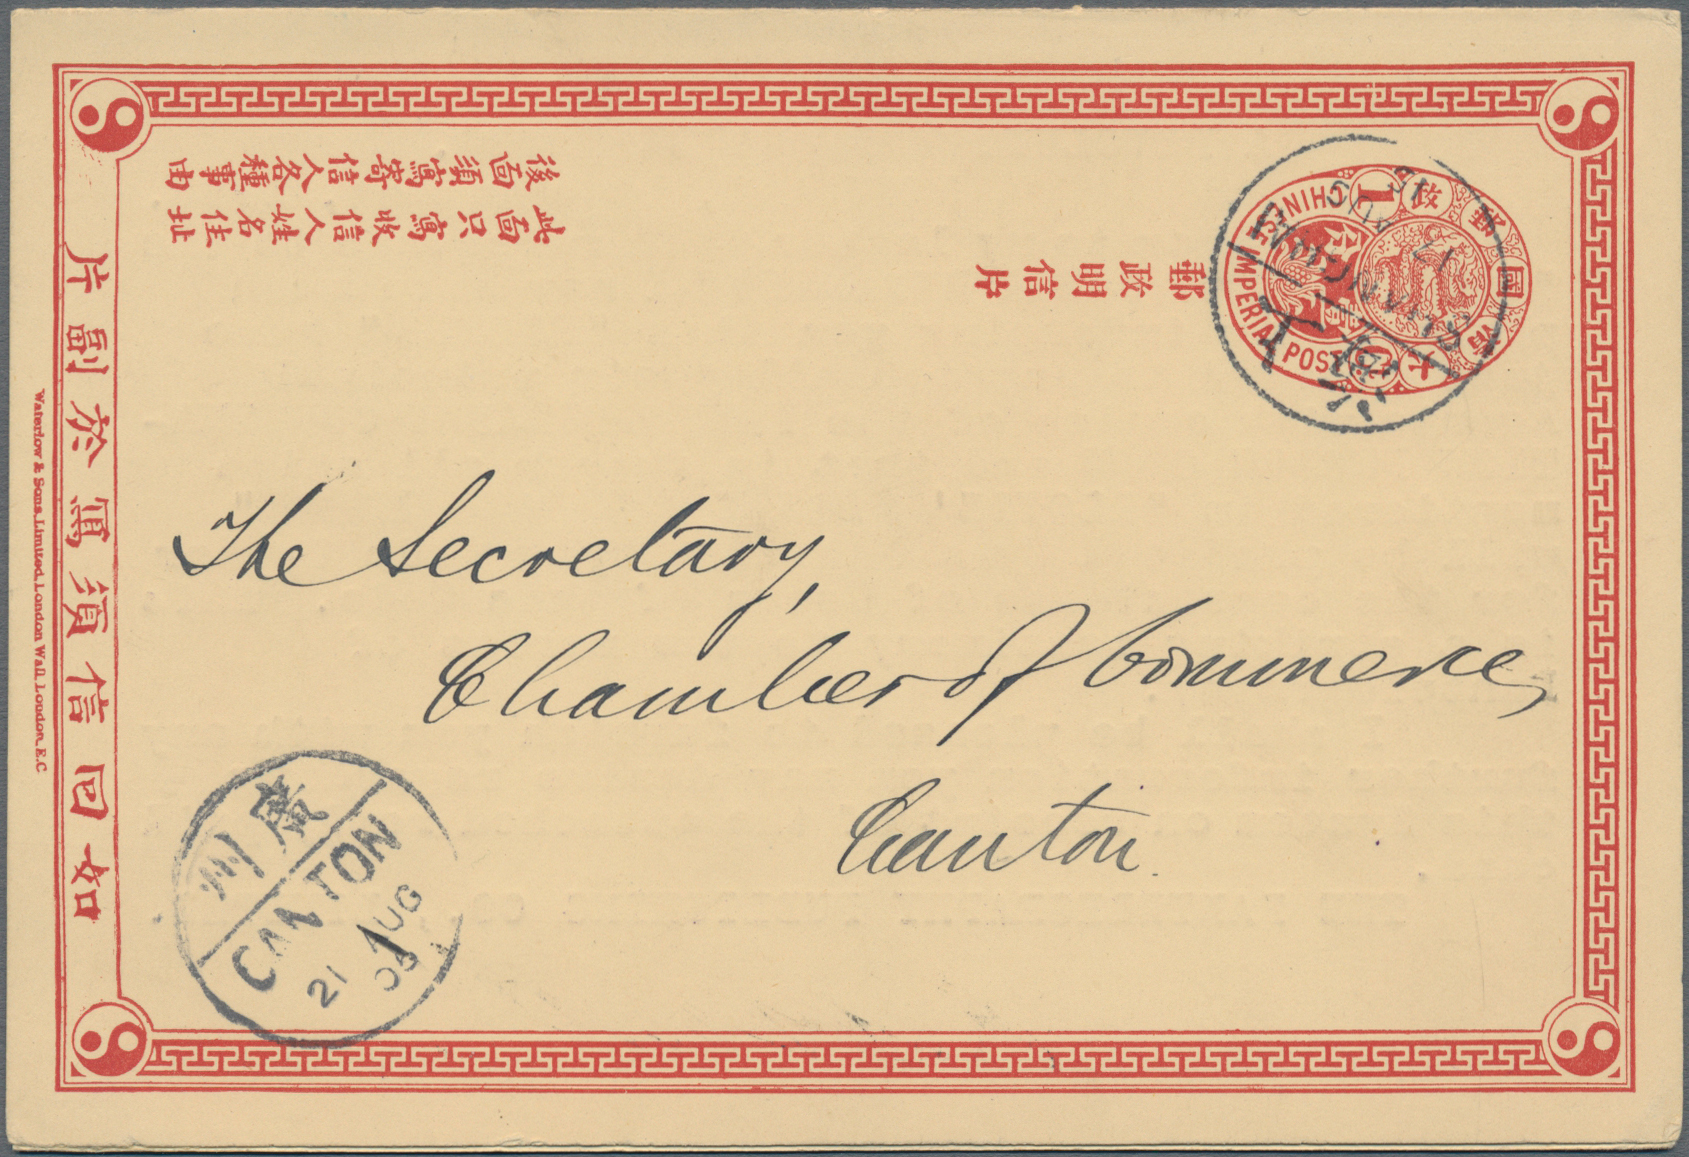 郵政明信片
此面只寫收信人姓名住址
後面須寫寄信人各種事由
如回信須寫於副片
CHINESE
IMPERIAL POST
大清國郵政
1
SHANGHAI
17 AUG
上海
The Secretary,
Chamber of Commerce,
Canton.
廣州
CANTON
21 AUG
05
1
Waterlow & Sons Limited, London Wall, London, E.C